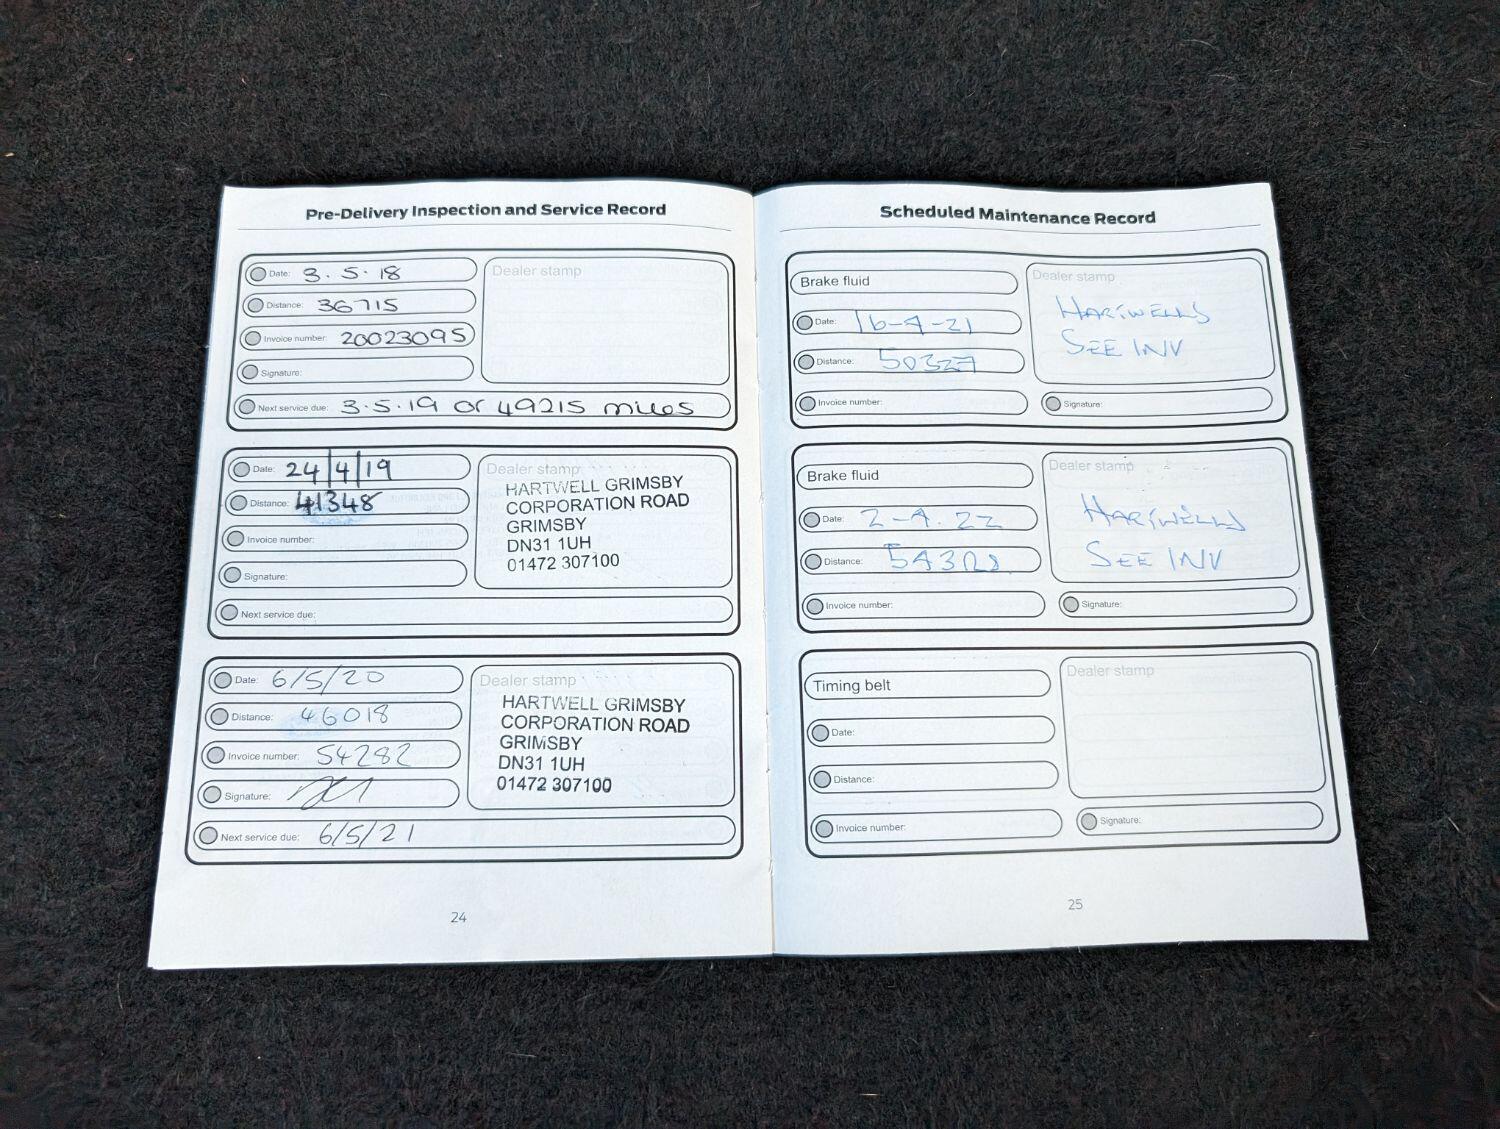 Pre-Delivery Inspection and Service Record
Date: 3.5.18
Dealer stamp
Distance: 36715
Invoice number: 20023095
Signature:
Next service due: 3.5.19 or 49215 miles
Date: 24/4/19
Dealer stamp
Distance: 41348
HARTWELL GRIMSBY
CORPORATION ROAD
GRIMSBY
DN31 1UH
01472 307100
Invoice number:
Signature:
Next service due:
Date: 6/5/20
Dealer stamp
Distance: 46018
HARTWELL GRIMSBY
CORPORATION ROAD
GRIMSBY
DN31 1UH
01472 307100
Invoice number: 54282
Signature:
Next service due: 6/5/21
24
Scheduled Maintenance Record
Brake fluid
Dealer stamp
Date: 16-4-21
HARTWELLS
SEE INV
Distance: 50327
Invoice number:
Signature:
Brake fluid
Dealer stamp
Date: 2-4.22
HARTWELLS
SEE INV
Distance:
Invoice number:
Signature:
Timing belt
Dealer stamp
Date:
Distance:
Invoice number:
Signature:
25